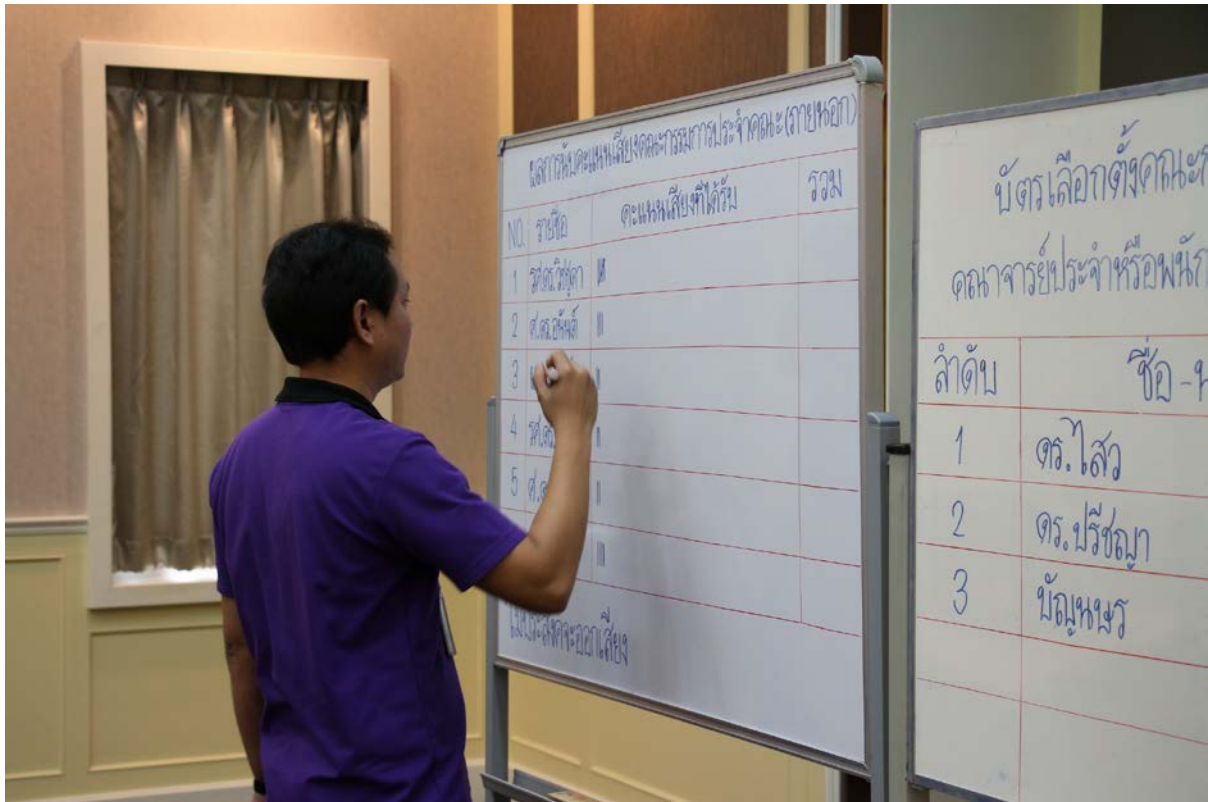 ผลการนับคะแนนเสียงคณะกรรมการประจำคณะ(ภายนอก)
NO. รายชื่อ คะแนนเสียงที่ได้รับ รวม
1 รศ.ดร.วิชชุดา
2 ศ.ดร.อนันต์
3
4 รศ.ดร.
5 ศ.ด
ไม่ประสงค์จะออกเสียง
บัตรเลือกตั้งคณะก
คณาจารย์ประจำหรือพนัก
ลำดับ ชื่อ-น
1 ดร.ไสว
2 ดร.ปรีชญา
3